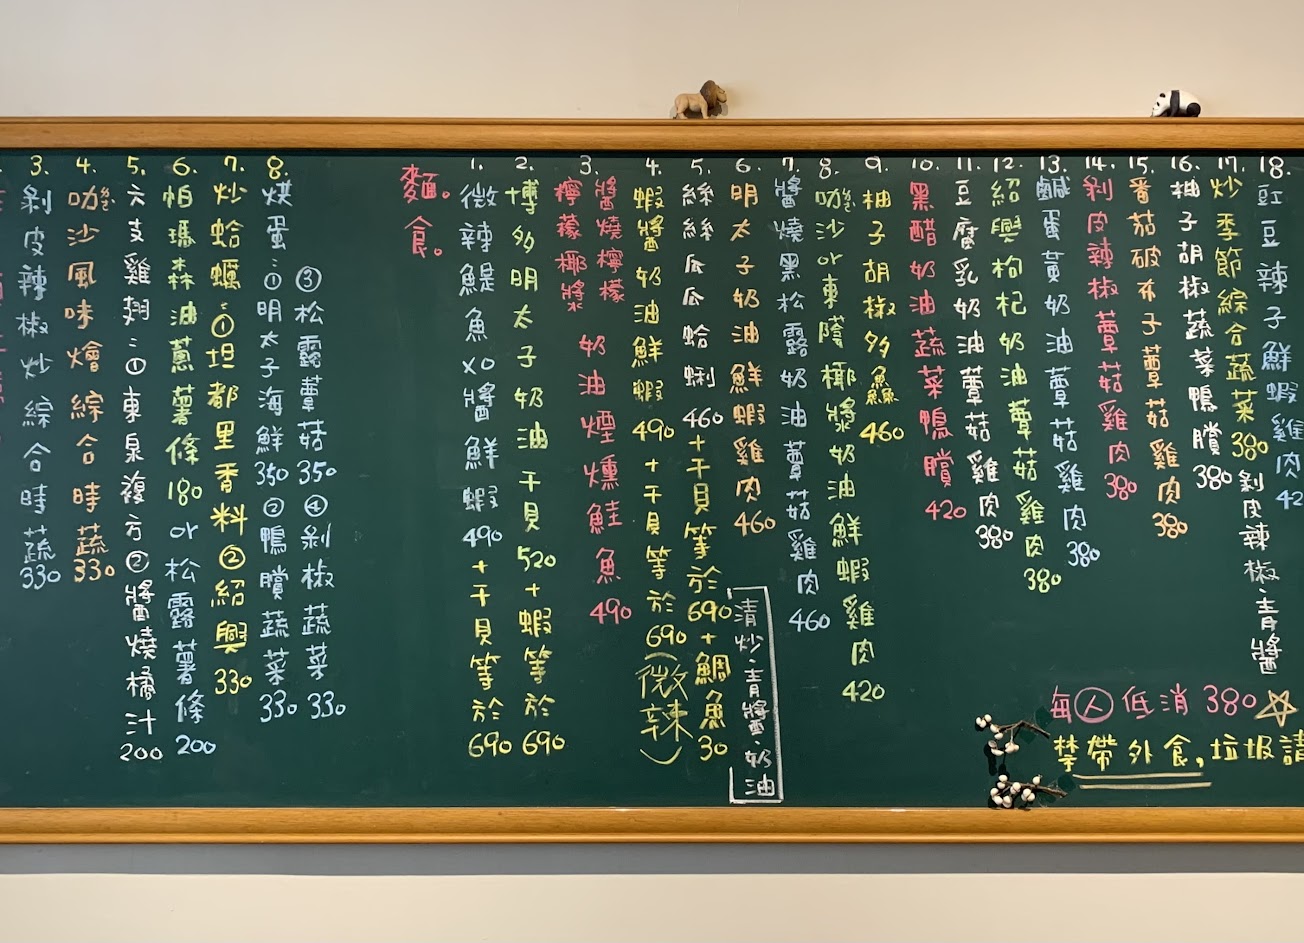 3. 剝皮辣椒炒綜合時蔬 330
4. 叻沙風味燴綜合時蔬 330
5. 六支雞翅：①東泉複方②醬燒橘汁 200
6. 帕瑪森油蔥薯條 180 or 松露薯條 200
7. 炒蛤蠣：①坦都里香料②紹興 330
8. 烘蛋：①明太子海鮮 350 ②鴨賞蔬菜 330
③松露蕈菇 350 ④剁椒蔬菜 330
麵。食。
1. 微辣鯷魚XO醬鮮蝦 490 + 干貝等於 690
2. 博多明太子奶油干貝 520 + 蝦等於 690
3. 醬燒檸檬
檸檬椰漿
奶油煙燻鮭魚 490
4. 蝦醬奶油鮮蝦 490 + 干貝等於 690 (微辣)
5. 絲絲瓜瓜蛤蜊 460 + 干貝等於 690 + 鯛魚 30
清炒、青醬、奶油
6. 明太子奶油鮮蝦雞肉 460
7. 醬燒黑松露奶油蕈菇雞肉 460
8. 叻沙or東蔭椰漿奶油鮮蝦雞肉 420
9. 柚子胡椒多鱻 460
10. 黑醋奶油蔬菜鴨賞 420
11. 豆腐乳奶油蕈菇雞肉 380
12. 紹興枸杞奶油蕈菇雞肉 380
13. 鹹蛋黃奶油蕈菇雞肉 380
14. 剝皮辣椒蕈菇雞肉 380
15. 番茄破布子蕈菇雞肉 380
16. 柚子胡椒蔬菜鴨賞 380
17. 炒季節綜合蔬菜 380
剝皮辣椒、青醬
18. 豇豆辣子鮮蝦雞肉 42
每人低消 380
禁帶外食,垃圾請